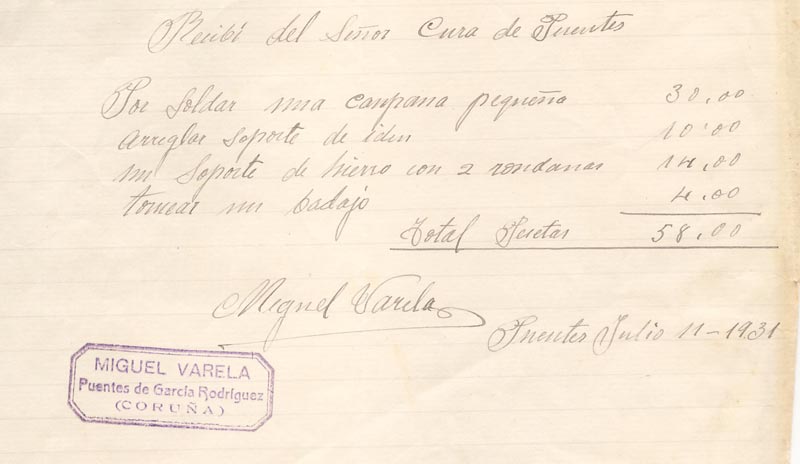 Recibí del Señor Cura de Puentes
Por soldar una canpana pequeña 30.00
arreglar soporte de iden 10.00
un soporte de hierro con 2 rondanas 14.00
tornear un badajo 4.00
Total Pesetas 58.00
Miguel Varela
Puentes Julio 11-1931
MIGUEL VARELA
Puentes de García Rodríguez
(CORUÑA)